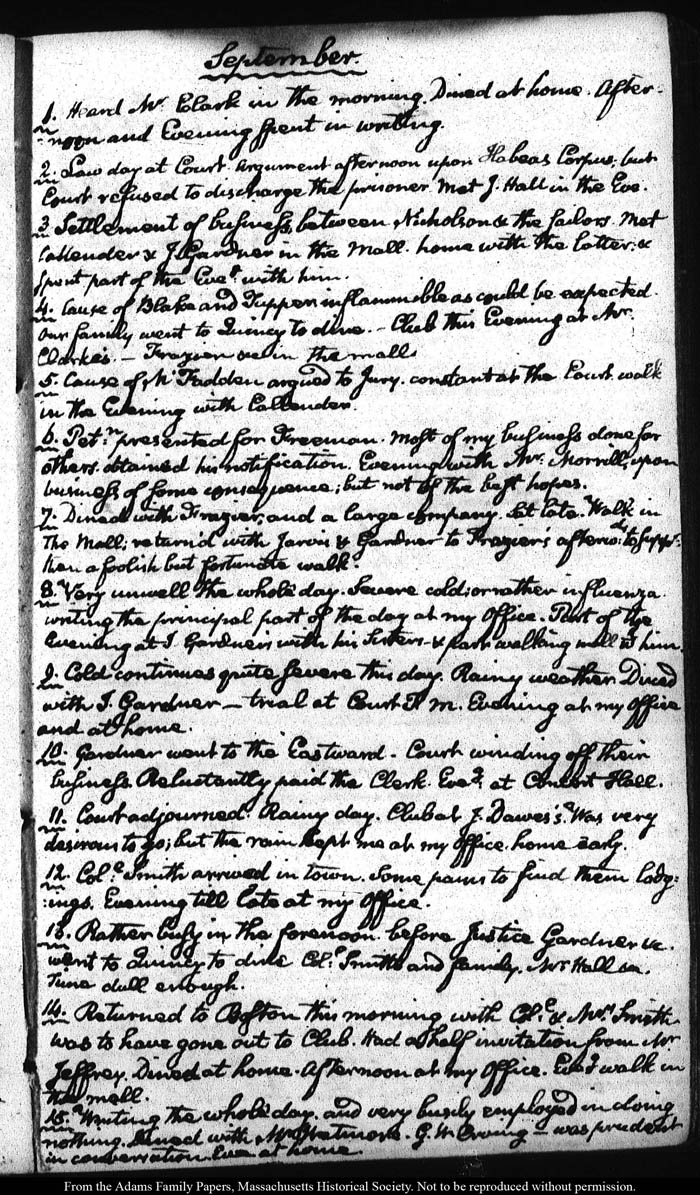 September.
1. Heard Mr. Clark in the morning. Dined at home. After-
:noon and Evening spent in writing.
2. Law day at Court. Argument afternoon upon Habeas Corpus; but
Court refused to discharge the prisoner. Met J. Hall in the Eve.
3. Settlement of business, between Nicholson & the sailors. Met
Callender & J. Gardner in the Mall. home with the latter: &
spent part of the Eveg. with him.
4. Cause of Blake and Tupper inflammible as could be expected.
our family went to Quincy to dine. – Club this Evening at Mr.
Clarke's. – Frazier &c in the mall.
5. Cause of McFadden argued to Jury. constant at the Court. walk
in the Evening with Callender.
6. Petn. presented for Freeman. Most of my business done for
others. obtained his notification. Evening with Mr. Morrill, upon
business of some consequence; but not of the best hopes.
7. Dined with Frazier, and a large company. Set late. Walk in
the Mall; return'd with Jarvis & Gardner to Frazier's afterwds. to supper.
then a foolish but fortunate walk.
8. Very unwell the whole day. Severe cold; or rather influenza.
writing the principal part of the day at my Office. Part of the
Evening at J. Gardner's with his Sisters & part walking mall wh. him.
9. Cold continues quite severe this day. Rainy weather. Dined
with J. Gardner – trial at Court P. M. Evening at my Office
and at home.
10. Gardner went to the Eastward. Court winding off their
business. Reluctantly paid the Clerk. Eveg. at Concert Hall.
11. Court adjourned. Rainy day. Club at J. Dawes's. Was very
desirous to go; but the rain kept me at my Office. home early.
12. Colo. Smith arrived in town. Some pains to find them lodg:
:ings. Evening till late at my Office.
13. Rather busy in the forenoon. before Justice Gardner &c.
went to Quincy to dine Colo. Smith and family. Mr. Hall &c.
Time dull enough.
14. Returned to Boston this morning with Colo. & Mrs. Smith
was to have gone out to Club. Had a half invitation from Mr.
Jeffrey. Dined at home. Afternoon at my Office. Eveg. walk in
the mall.
15. Writing the whole day. and very busily employed in doing
nothing. Dined with Mr. Wetmore. G. W. Erving – was prudent
in conversation. Eve at home.
From the Adams Family Papers, Massachusetts Historical Society. Not to be reproduced without permission.